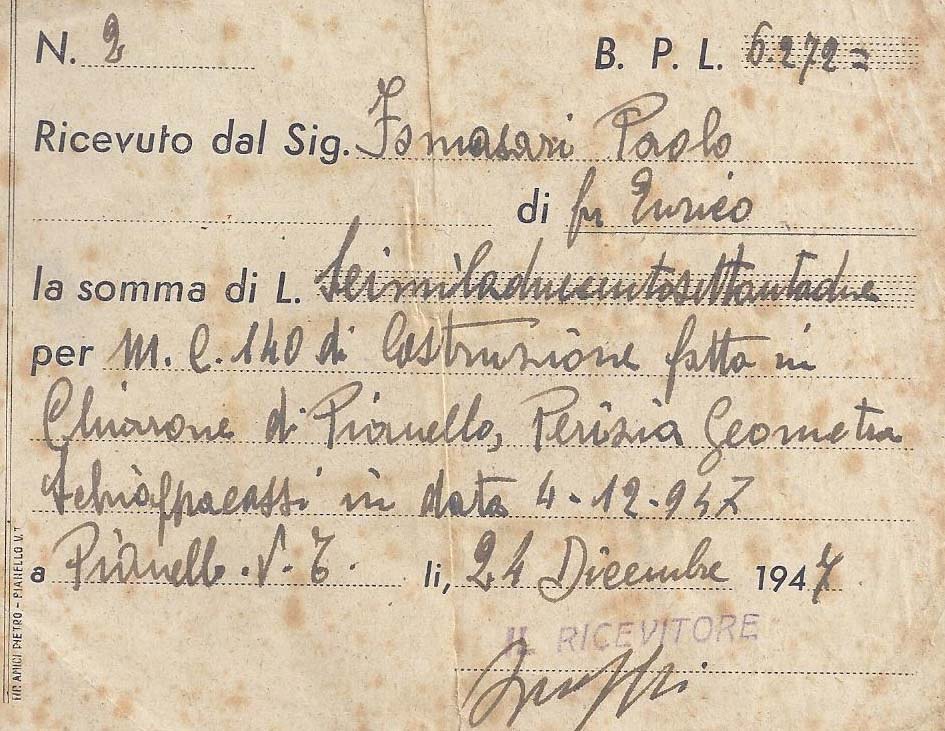 N. 2 B. P. L. 6.272=
Ricevuto dal Sig. Fomasari Paolo
di fu Enrico
la somma di L. Seimiladuecentosettantadue
per M. C. 140 di Costruzione fatta in
Chiarone di Pianello, Perizia Geometra
Schiappacassi in data 4-12-947
a Pianello .V.T. li, 24 Dicembre 1947
IL RICEVITORE
TIP. AMICI PIETRO - PIANELLO V.T.